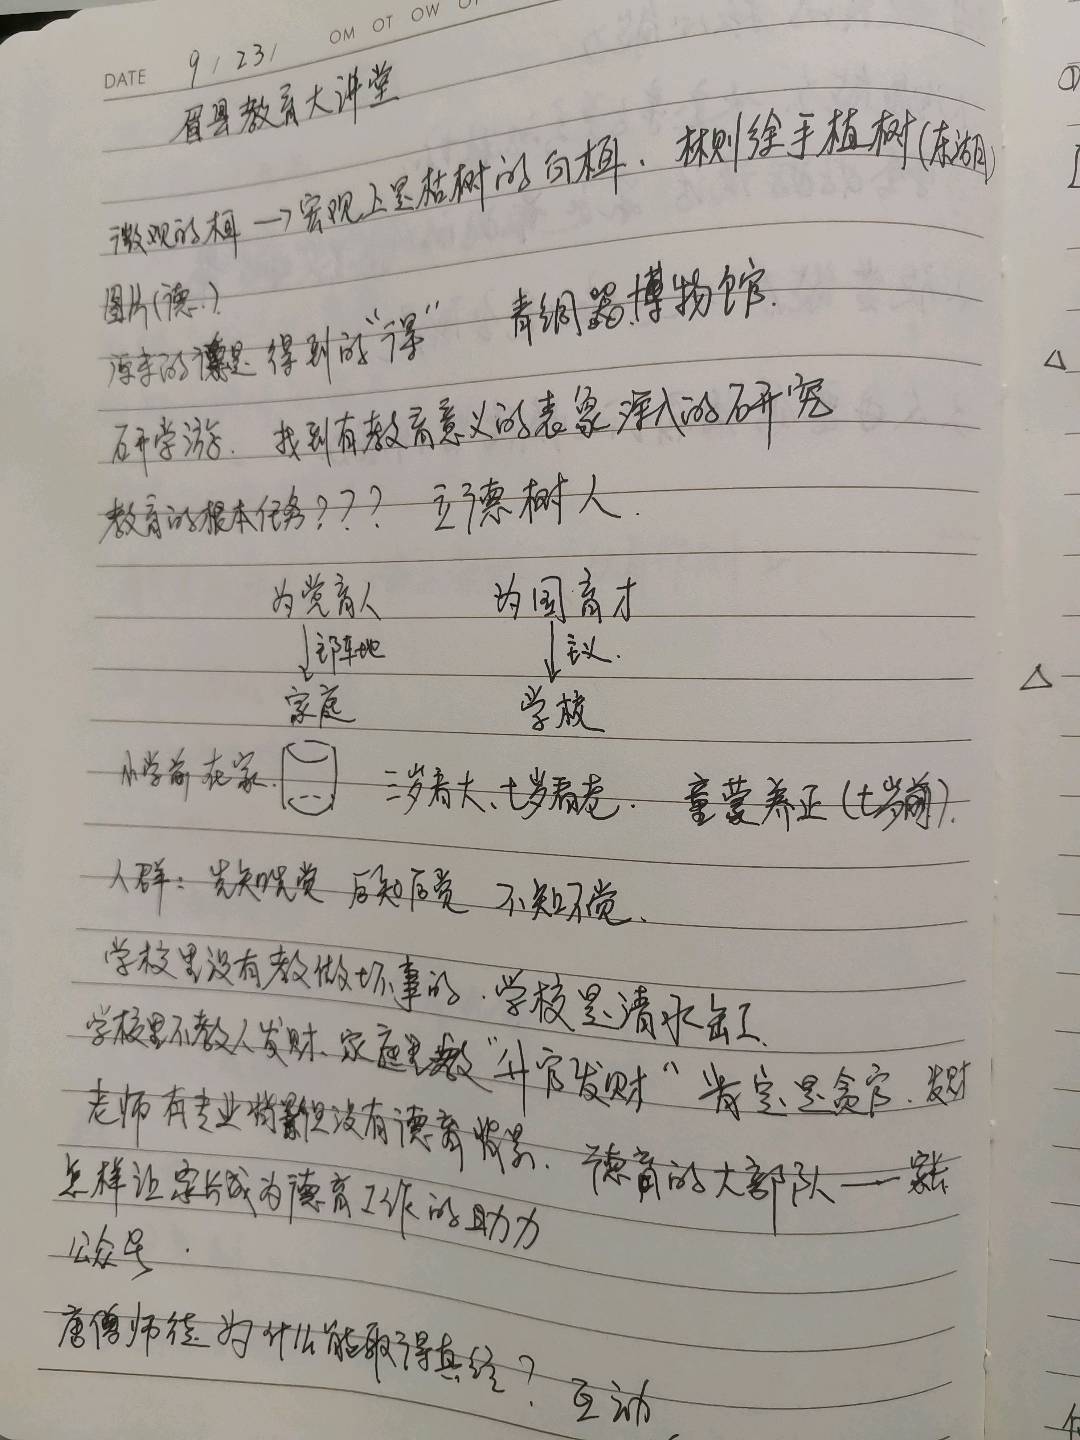 OM OT OW
DATE 9/23/
眉县教育大讲堂
微观的柯 → 宏观上是枯树的 林则徐手植树(东湖)
图片(德.)
原来的德是得到的“得” 青铜器博物馆.
研学游. 找到有教育意义的表象深入的研究
教育的根本任务??? 立德树人.
为党育人 为国育才
↓主阵地 ↓主义.
家庭 学校
小学前在家. 三岁看大、七岁看老. 童蒙养正(七岁前).
人群: 先知先觉 后知后觉 不知不觉.
学校里没有教做坏事的. 学校是清水缸.
学校里不教人发财、家庭里教“升官发财” 肯定是贪官. 发财
老师有专业背景但没有德育背景. 德育的大部队——家长
怎样让家长成为德育工作的助力
公众号.
唐僧师徒为什么能取得真经? 互动